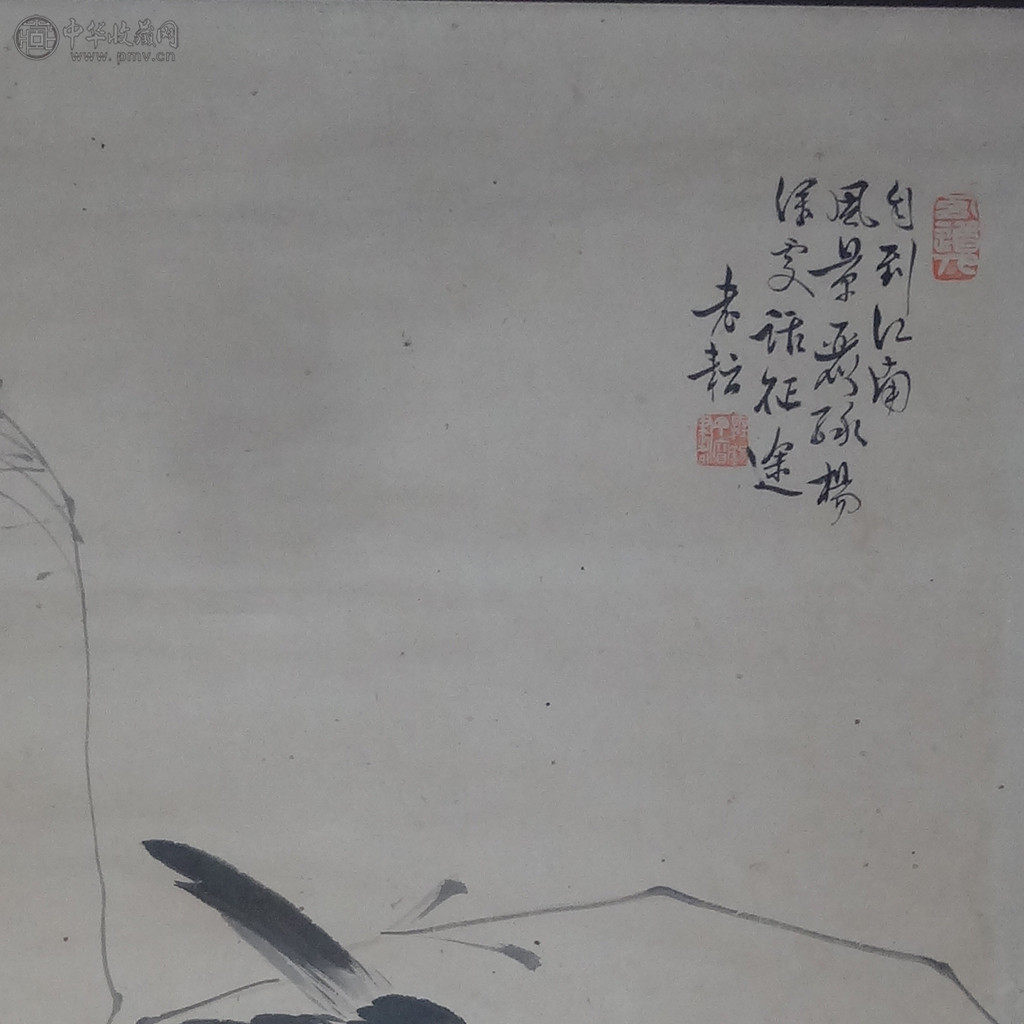 中华收藏网
www.pmv.cn
自到江南
風景麗綠楊
深處話征途
老耘